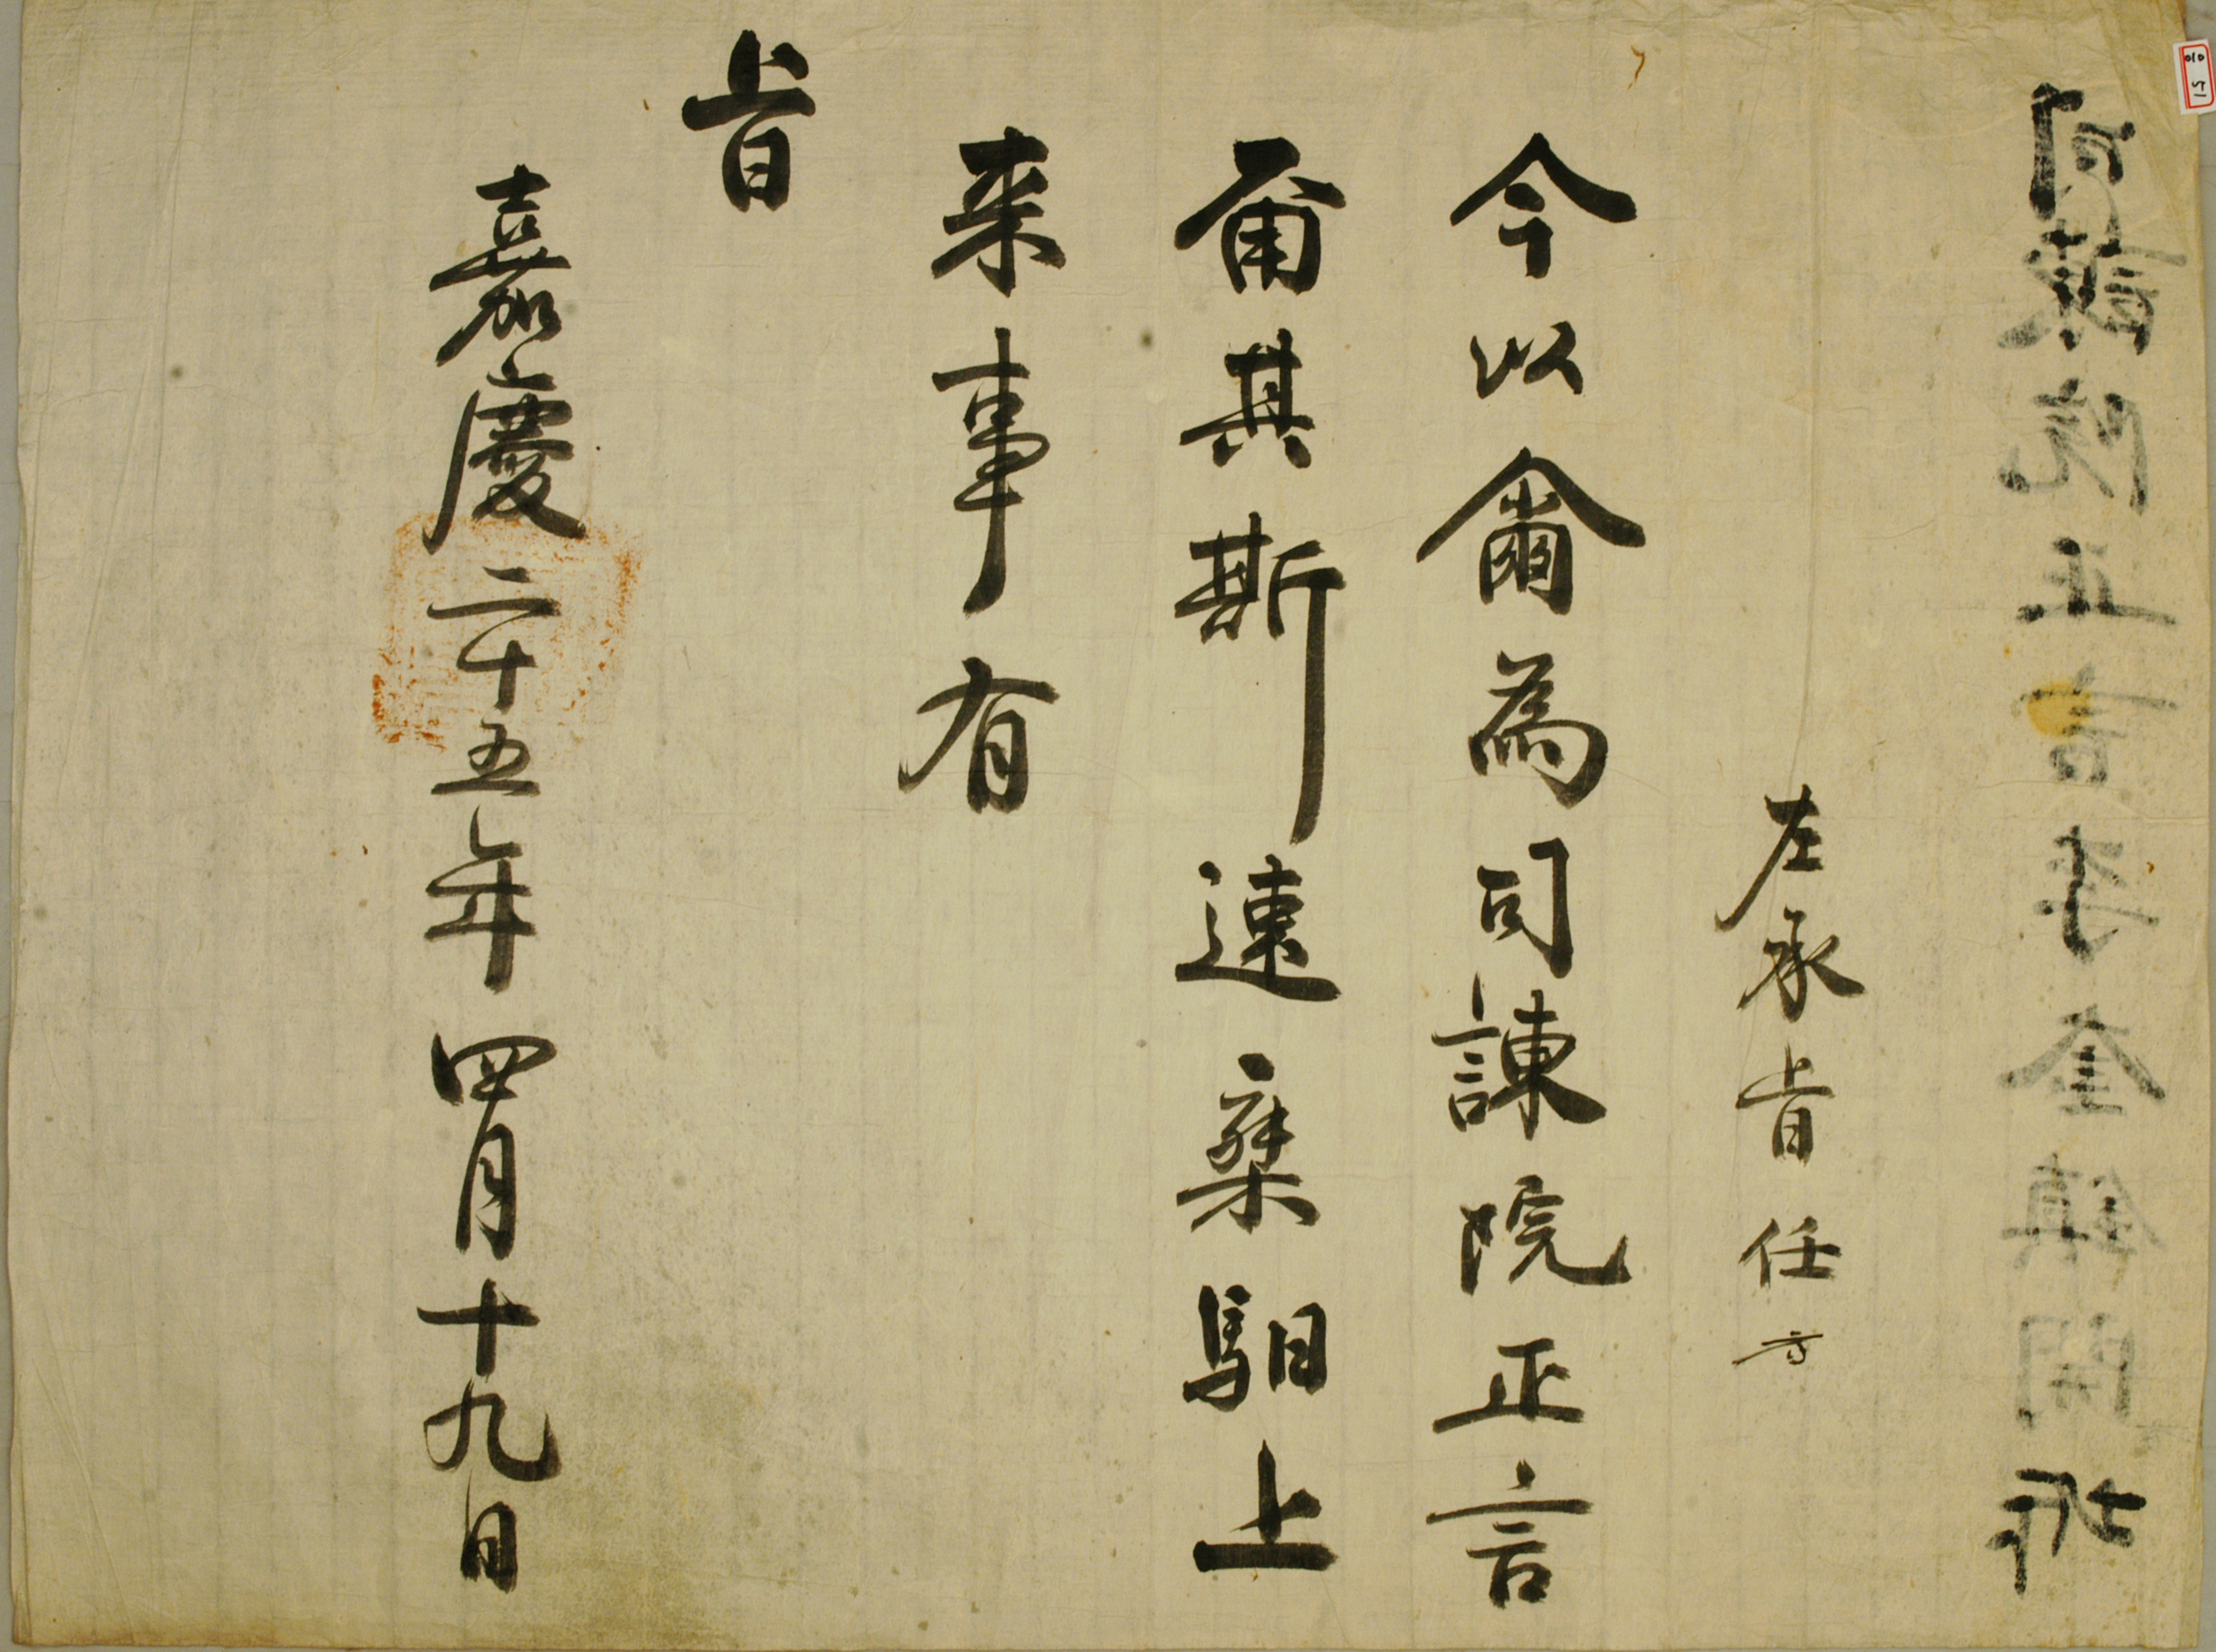 司諫院正言李奎鎮開坼
左承旨任
今以爾為司諫院正言
爾其斯速乘馹上
来事有
旨
嘉慶二十五年四月十九日